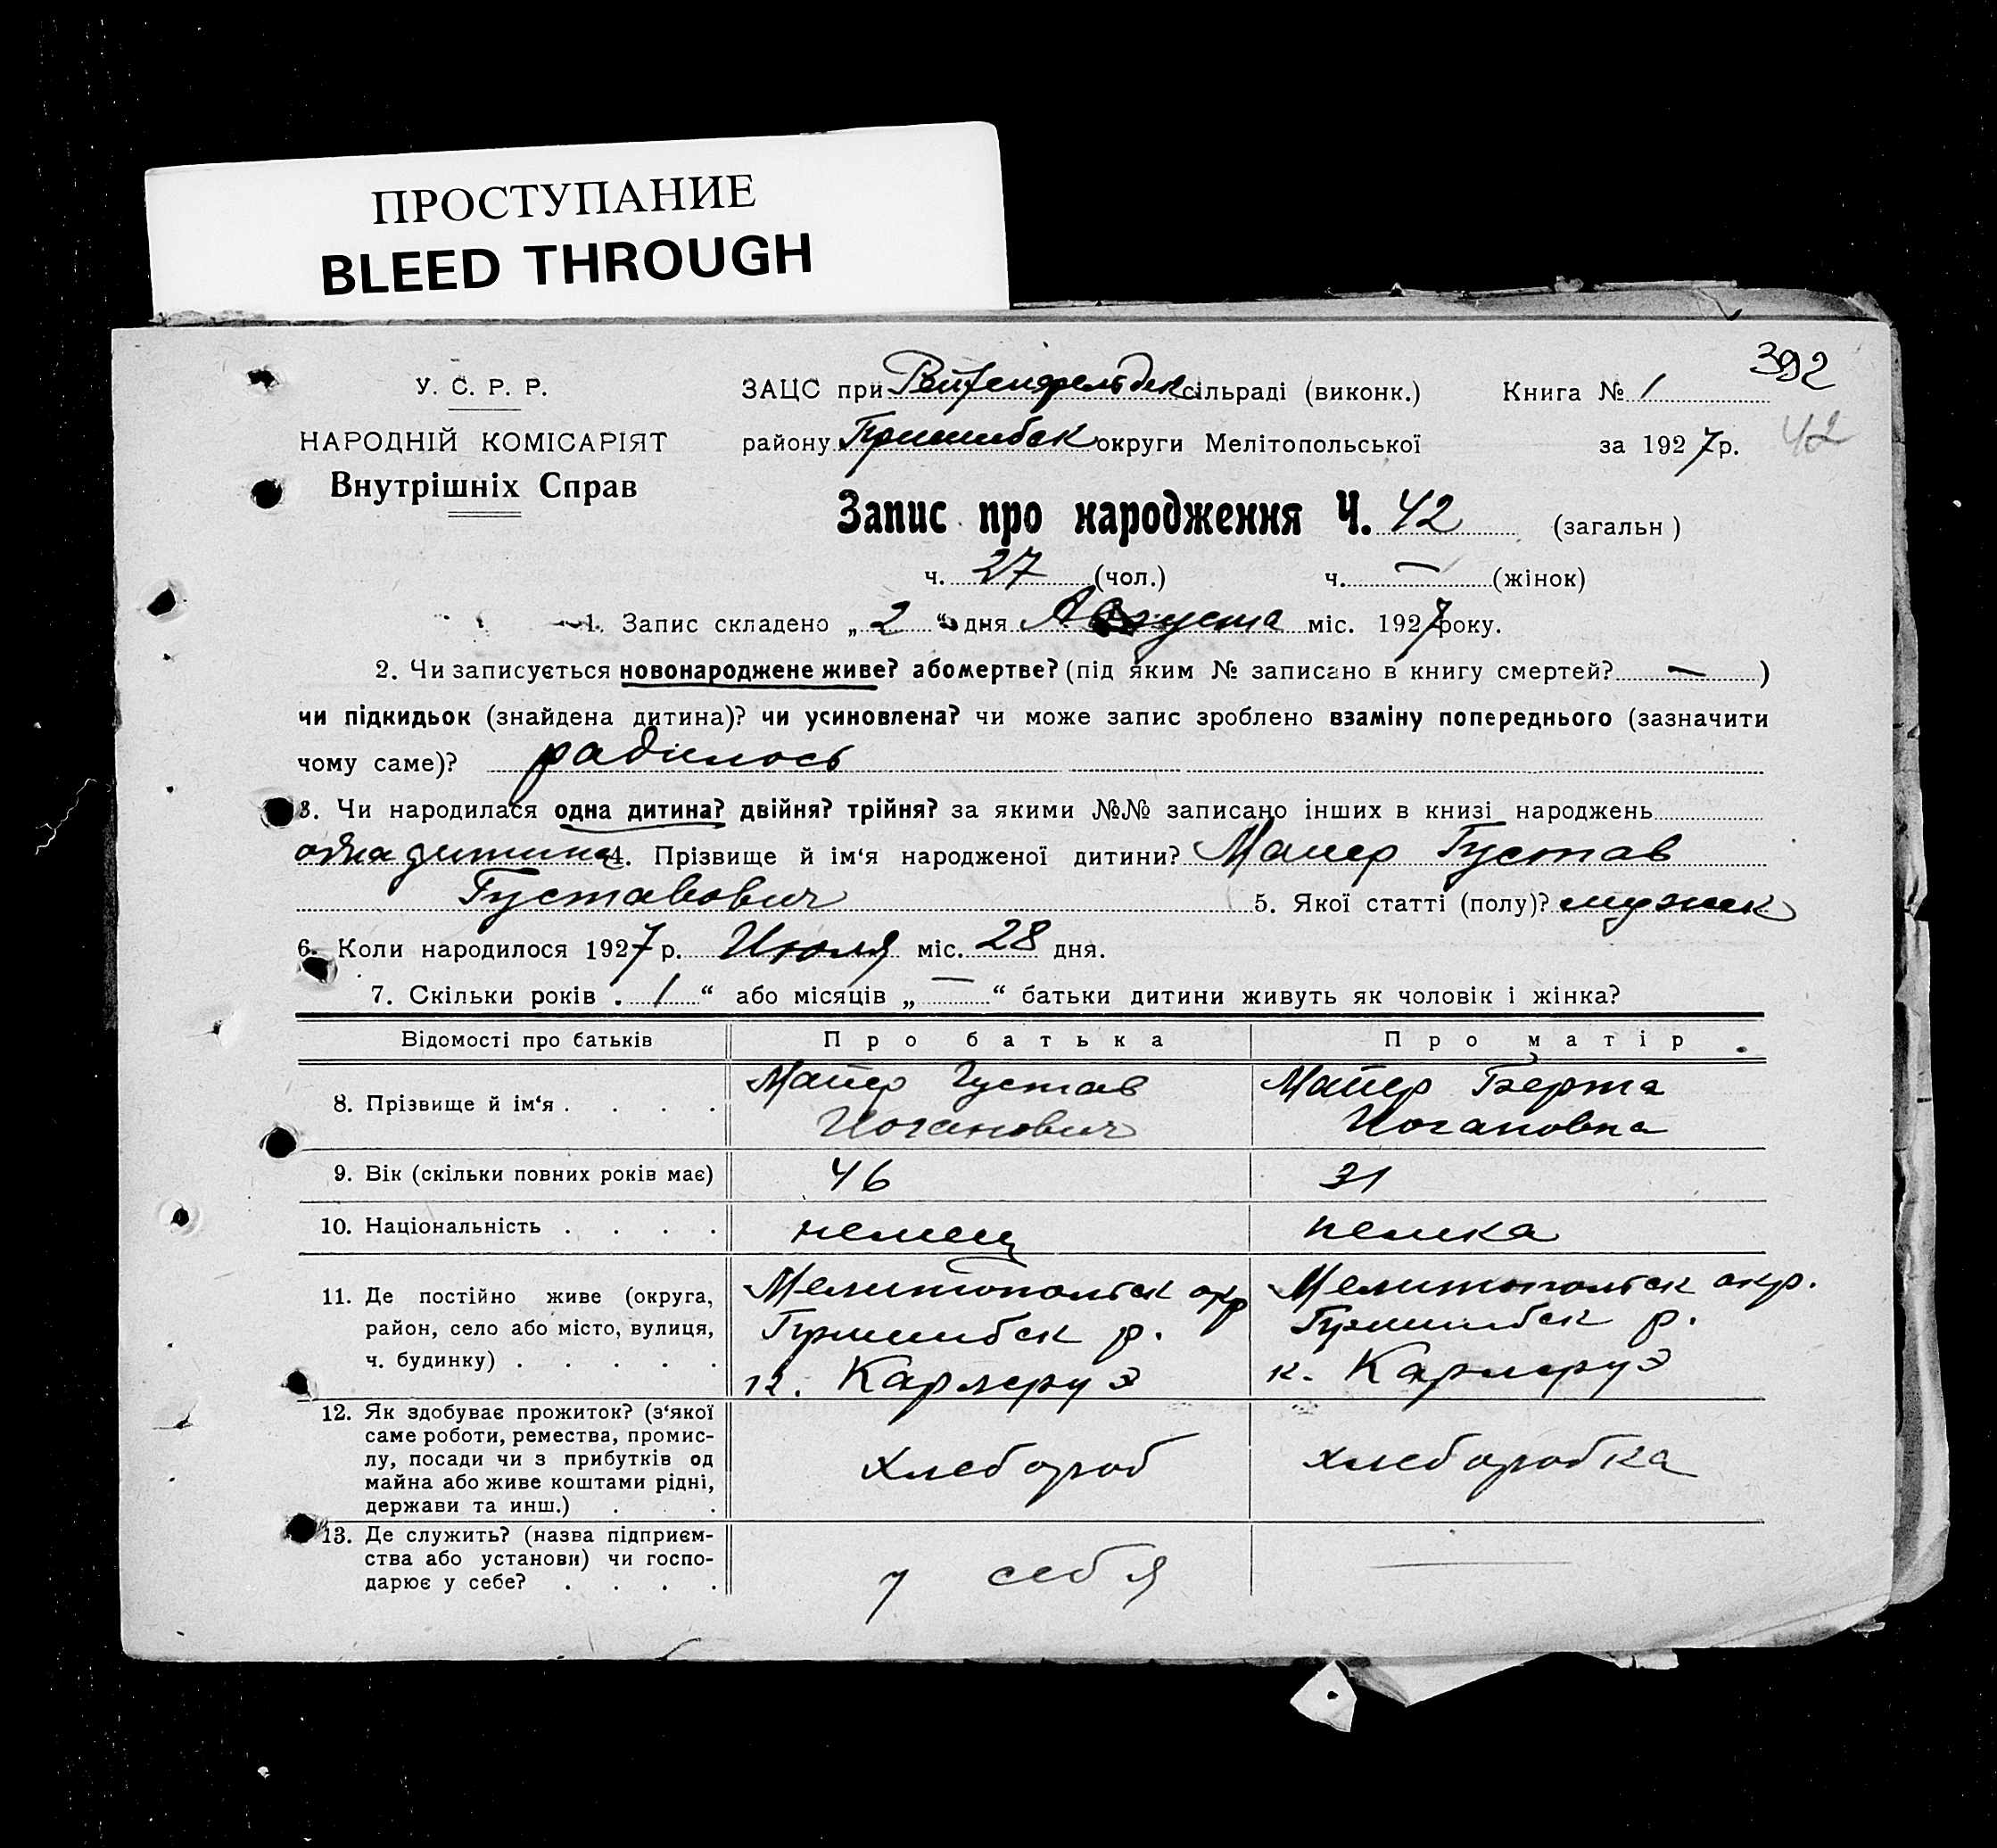 ПРОСТУПАНИЕ
BLEED THROUGH
392
У. С. Р. Р.
НАРОДНІЙ КОМІСАРІЯТ
Внутрішніх Справ
ЗАЦС при Рейхенфельдск сільраді (виконк.) Книга № 1
району Пришибск округи Мелітопольської за 1927 р. 42
Запис про народження Ч. 42 (загальн )
ч. 27 (чол.) ч. — (жінок)
1. Запис складено „ 2 “ дня Августа міс. 1927 року.
2. Чи записується новонароджене живе? або мертве? (під яким № записано в книгу смертей? — )
чи підкидьок (знайдена дитина)? чи усиновлена? чи може запис зроблено взаміну попереднього (зазначити
чому саме)? радилось
3. Чи народилася одна дитина? двійня? трійня? за якими №№ записано інших в книзі народжень
одна дитина 4. Прізвище й ім‘я народженої дитини? Майер Густав
Густавович 5. Якої статті (полу)? мужск
6. Коли народилося 1927 р. Июля міс. 28 дня.
7. Скільки років . 1 “ або місяців „ — “ батьки дитини живуть як чоловік і жінка?
Відомості про батьків Про батька Про матір
8. Прізвище й ім‘я . . . . Майер Густав Иоганович Майер Берта Иогановна
9. Вік (скільки повних років має) 46 31
10. Національність . . . . немец немка
11. Де постійно живе (округа, район, село або місто, вулиця, ч. будинку) . . . . . Мелитопольск окр Пришибск р. к. Карлсруэ Мелитопольск окр. Пришибск р. к. Карлсруэ
12. Як здобуває прожиток? (з‘якої саме роботи, ремества, промис-
лу, посади чи з прибутків од майна або живе коштами рідні, держави та инш.) . . хлебороб хлеборобка
13. Де служить? (назва підприєм-
ства або установи) чи госпо-
дарює у себе? . . . . у себя —